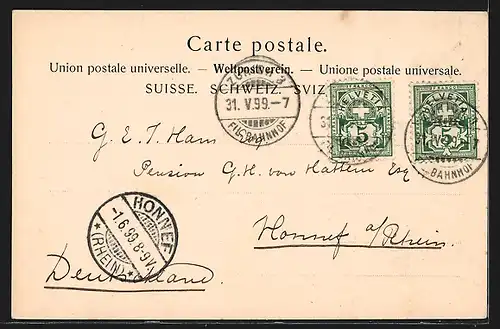 Carte postale.
Union postale universelle. — Weltpostverein. — Unione postale universale.
SUISSE. SCHWEIZ. SVIZ
31. V. 99.–7
BAHNHOF
HELVETIA
5
5
BAHNHOF
G. E. T. Ham
Pension G. H. von Hattem Esq
Honnef a/Rhein.
Deutschland.
HONNEF
1.6.99. 8-9V.
* (RHEIN) *